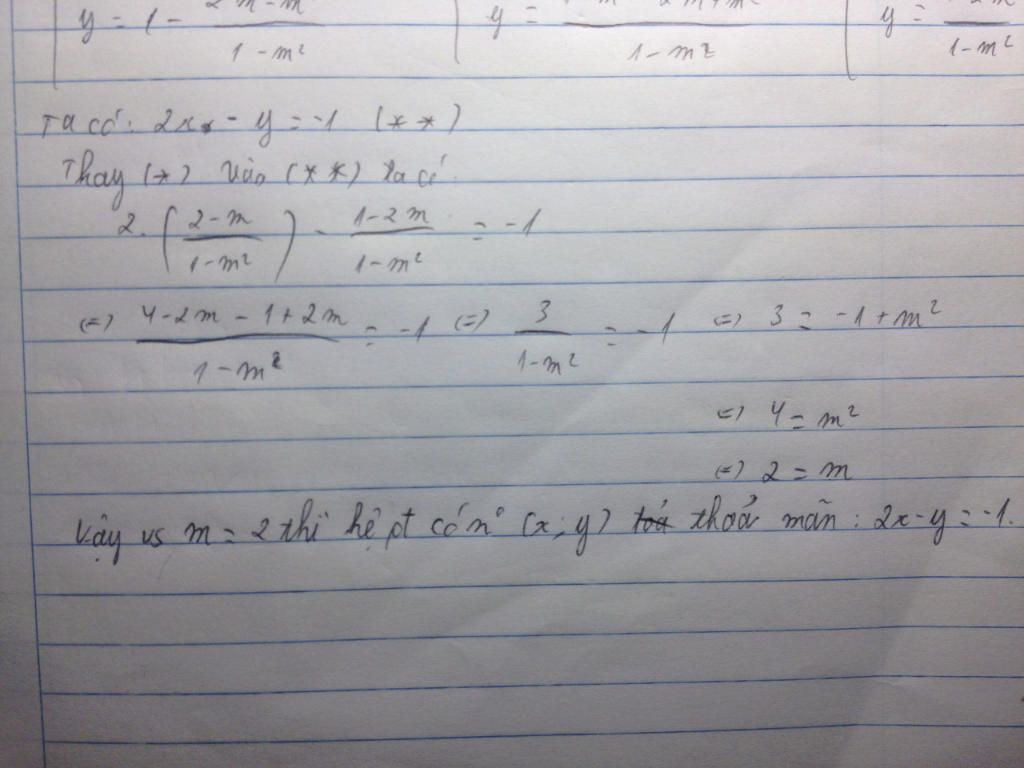 y = 1 - 2m-m² / 1-m² y = / 1-m² y = / 1-m²
Ta có: 2x - y = -1 (**)
Thay (*) vào (**) ta có:
2. (2-m / 1-m²) - 1-2m / 1-m² = -1
(=) 4-2m-1+2m / 1-m² = -1 (=) 3 / 1-m² = -1 (=) 3 = -1+m²
(=) 4 = m²
(=) 2 = m
Vậy vs m = 2 thì hệ pt có n° (x; y) thoả mãn: 2x-y=-1.